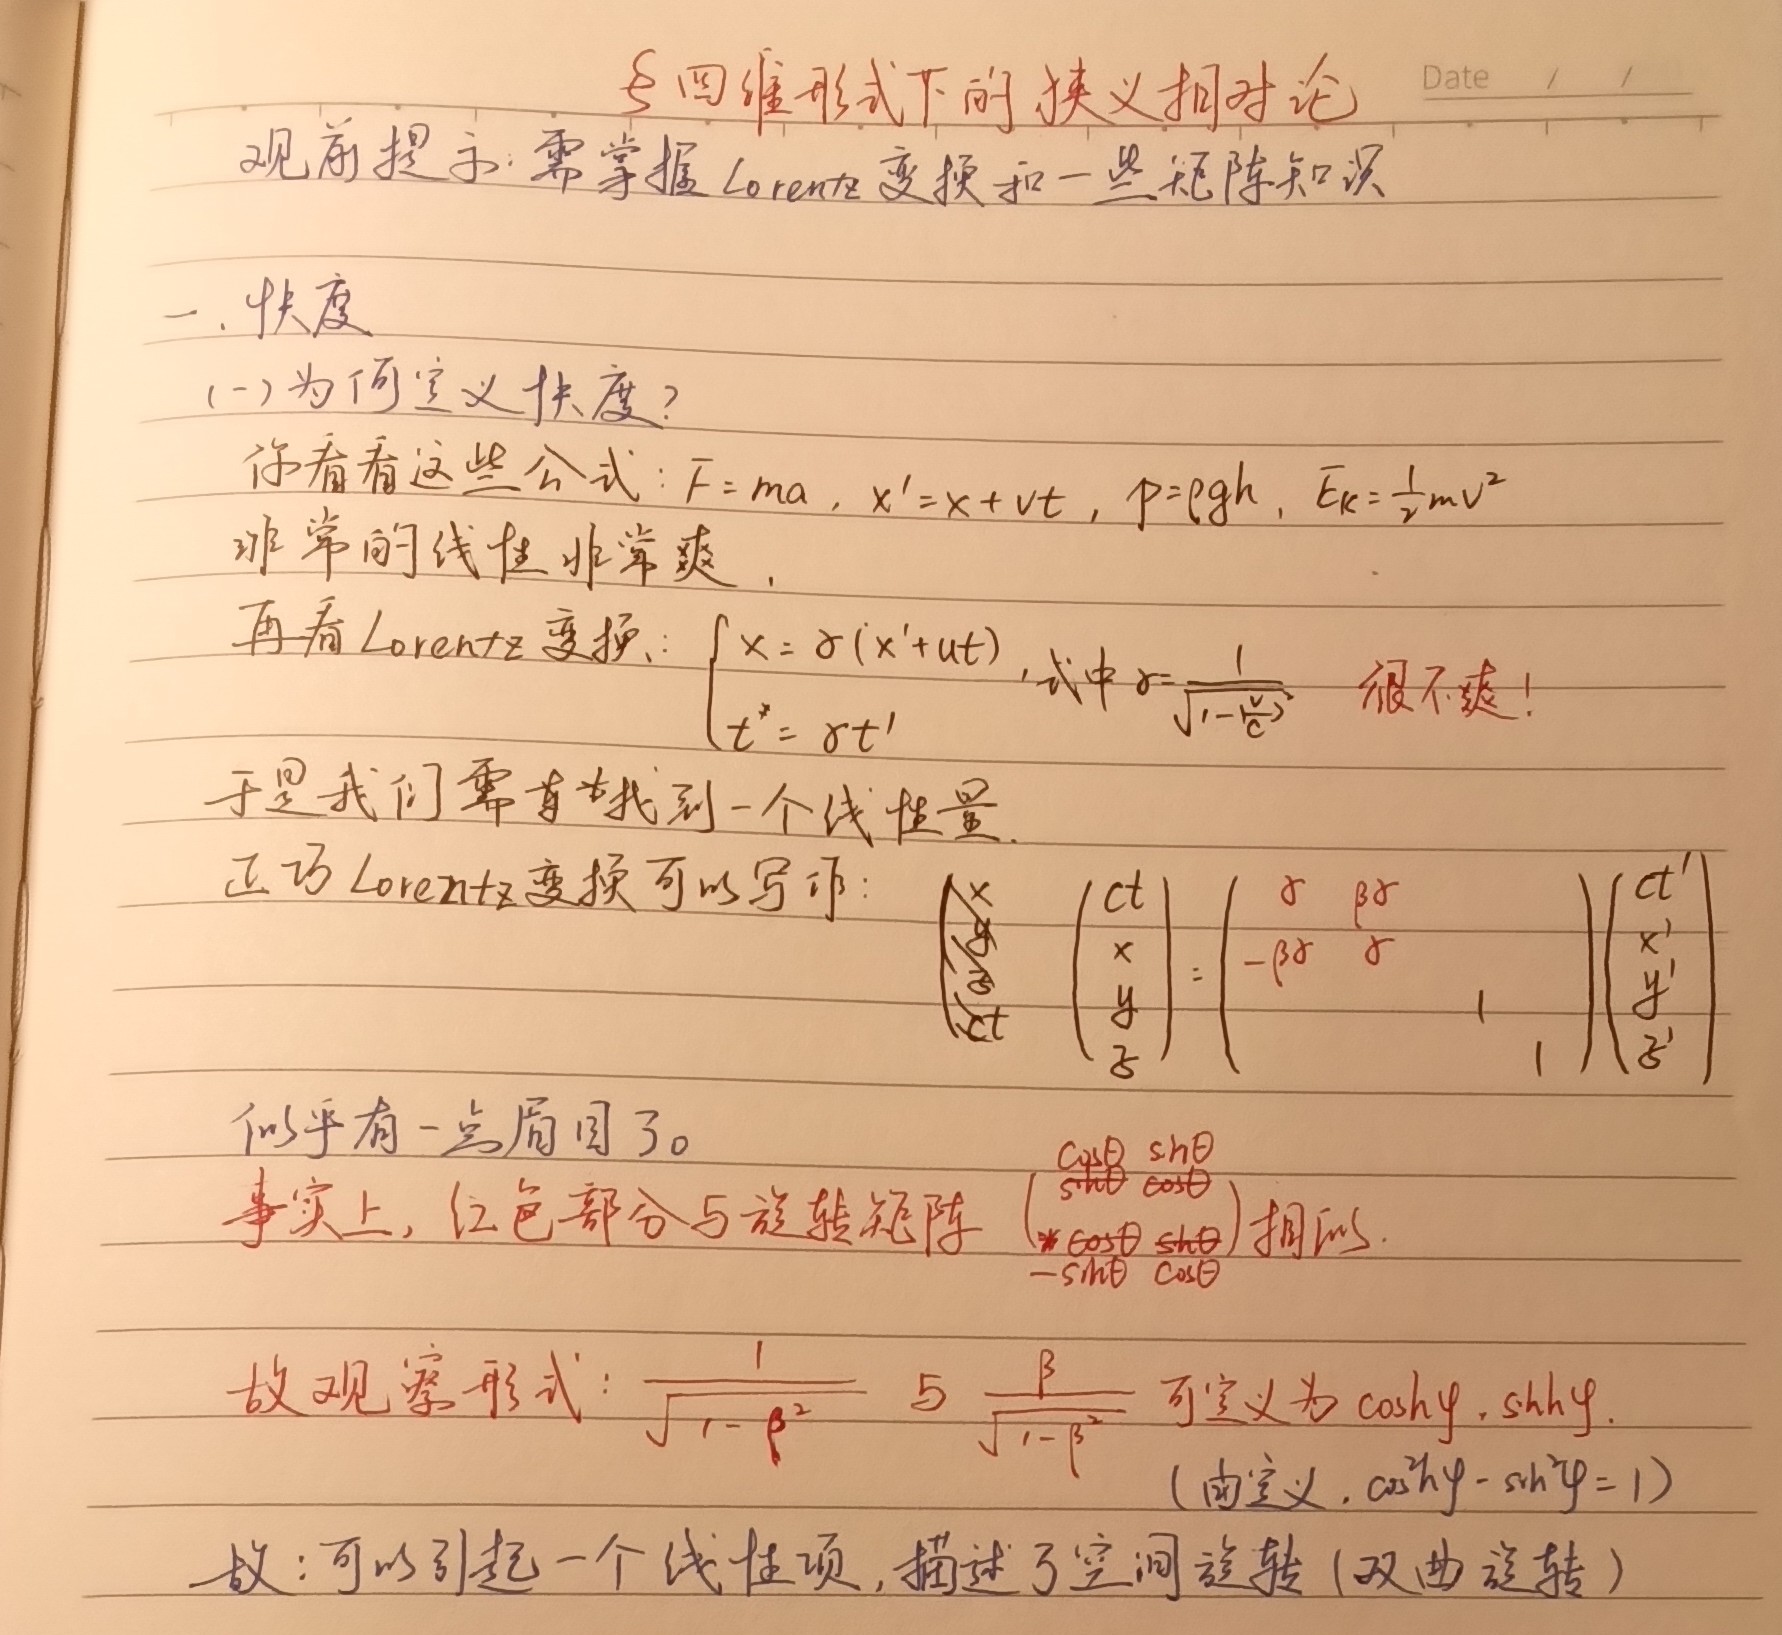 Date / /
§四维形式下的狭义相对论
观前提示:需掌握Lorentz变换和一些矩阵知识
一.快度
(一)为何定义快度?
你看看这些公式:F=ma,x'=x+vt,p=ρgh,Eₖ=½mv²
非常的线性非常爽.
再看Lorentz变换:{x=γ(x'+ut) t=γt',式中γ=1/√(1-(v/c)²) 很不爽!
于是我们需要找到一个线性量.
正巧Lorentz变换可以写作:(ct x y z)=(γ βγ -βγ γ 1 1)(ct' x' y' z')
似乎有一点眉目了。
事实上,红色部分与旋转矩阵(cosθ sinθ -sinθ cosθ)相似.
故观察形式:1/√(1-β²) 与 β/√(1-β²) 可定义为coshφ,sinhφ.
(由定义,cos²hφ-sinh²φ=1)
故:可以引起一个线性项,描述了空间旋转(双曲旋转)